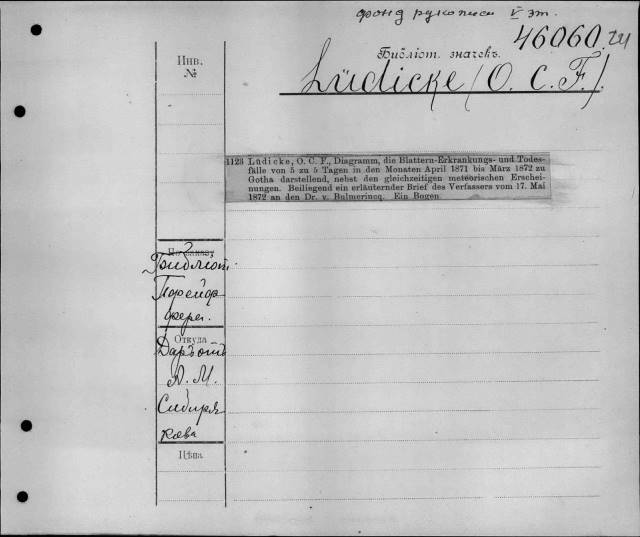 фонд рукописи V эт.
46060
Инв.
№
Библіот. значекъ.
Lüdicke (O. C. F.)
1123 Lüdicke, O. C. F., Diagramm, die Blattern-Erkrankungs- und Todes-
fälle von 5 zu 5 Tagen in den Monaten April 1871 bis März 1872 zu
Gotha darstellend, nebst den gleichzeitigen meteorischen Erschei-
nungen. Beiliegend ein erläuternder Brief des Verfassers vom 17. Mai
1872 an den Dr. v. Bulmerincq. Ein Bogen.
Библіот.
Откуда
Даръ отъ
А. М.
Сибиря
кова
Цѣна